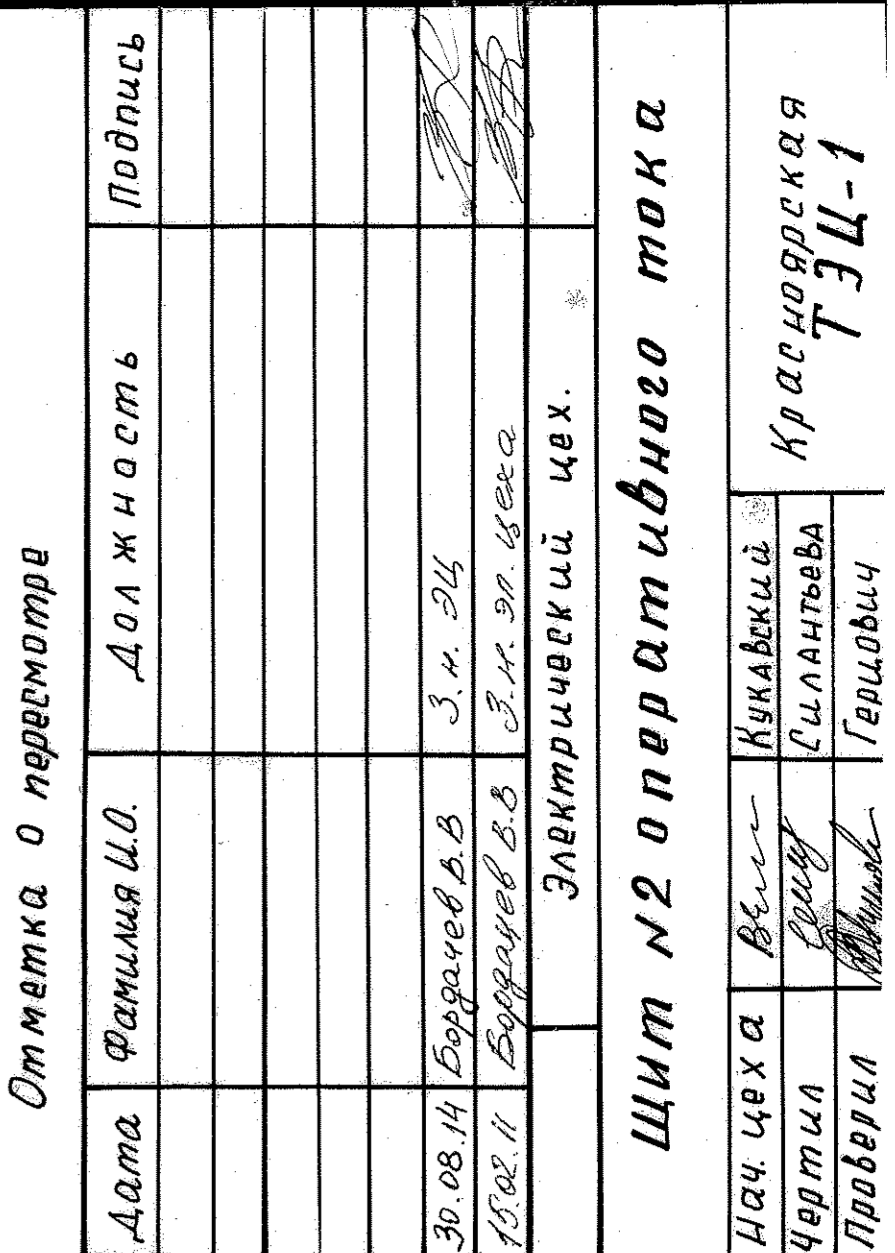 Отметка о пересмотре
Дата Фамилия И.О. Должность Подпись
30.08.14 Бордачев В.В З.н. ЭЦ
15.02.11 Бордачев В.В З.н. эл. цеха
Электрический цех.
Щит №2 оперативного тока
Нач. цеха Кукавский
Чертил Силантьева
Проверил Герцович
Красноярская
ТЭЦ-1